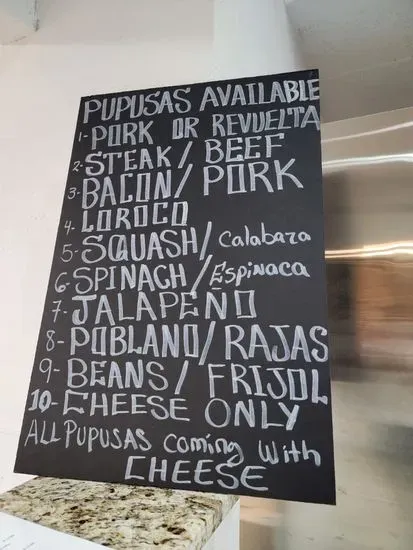 PUPUSAS AVAILABLE
1- PORK OR REVUELTA
2- STEAK/ BEEF
3- BACON/ PORK
4- LOROCO
5- SQUASH/ Calabaza
6- SPINACH/Espinaca
7- JALAPENO
8- POBLANO/ RAJAS
9- BEANS/ FRIJOL
10- CHEESE ONLY
ALL PUPUSAS coming With
CHEESE